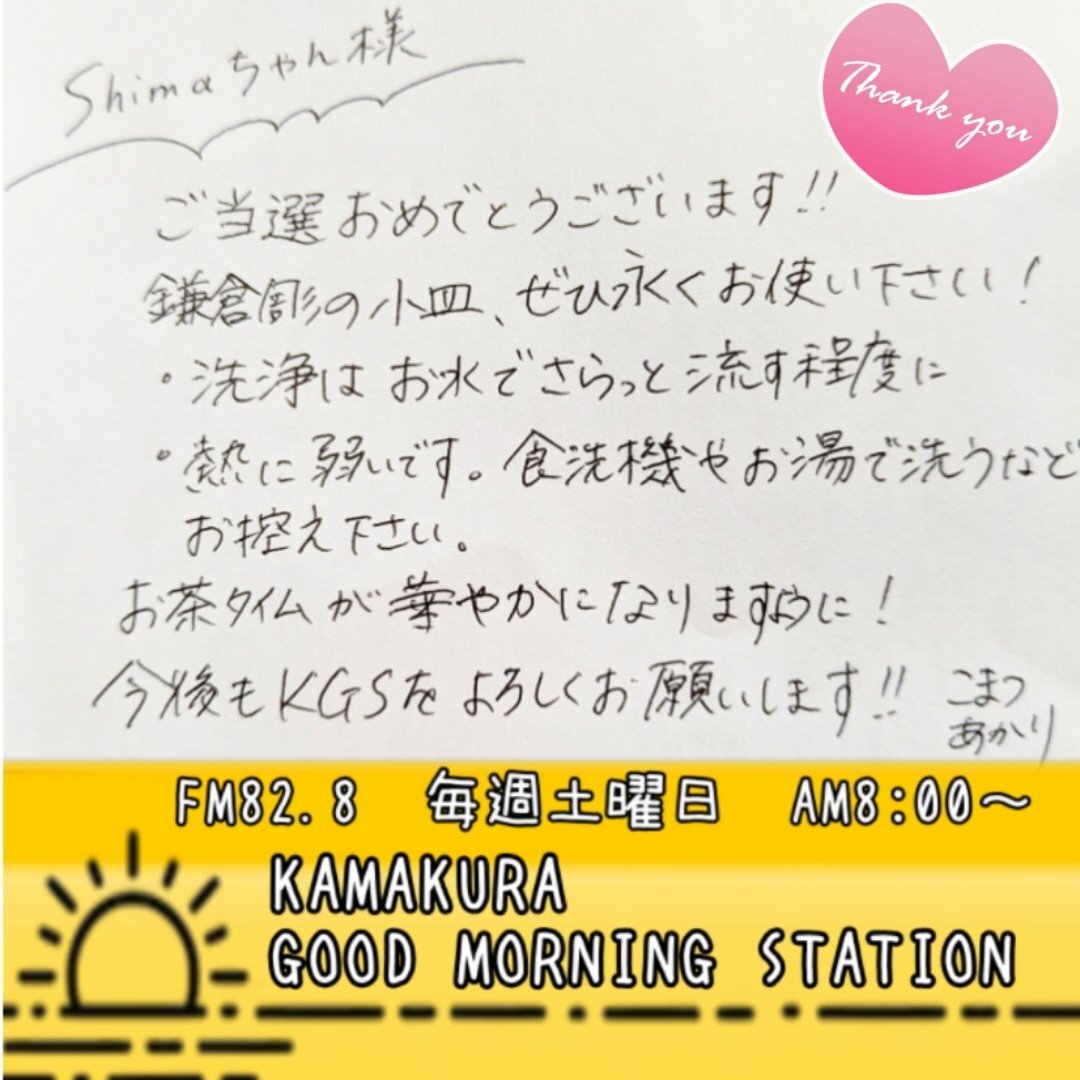 Shimaちゃん様
Thank you
ご当選おめでとうございます!!
鎌倉彫の小皿、ぜひ永くお使い下さい!
・洗浄は お水でさらっと流す程度に
・熱に弱いです。食洗機やお湯で洗うなど
お控え下さい。
お茶タイムが華やかになりますように!
今後もKGSをよろしくお願いします!!
こまつ
あかり
FM82.8 毎週土曜日 AM8:00〜
KAMAKURA
GOOD MORNING STATION